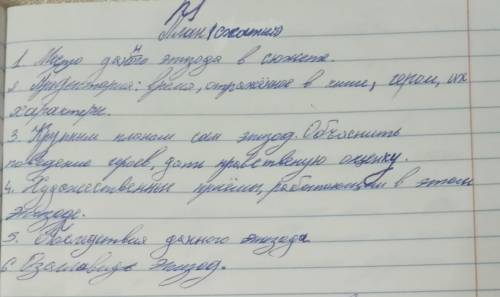 План (сжатия
1 Место данного эпизода в сюжете.
2 Предыстория: время, отражённое в книге, герои, их
характеры.
3. Крупным планом сам эпизод. Объяснить
поведение героев, дать нравственную оценку.
4. Художественные приёмы, работающие в этом
эпизоде.
5. Последствия данного эпизода
6 Озаглавить эпизод.